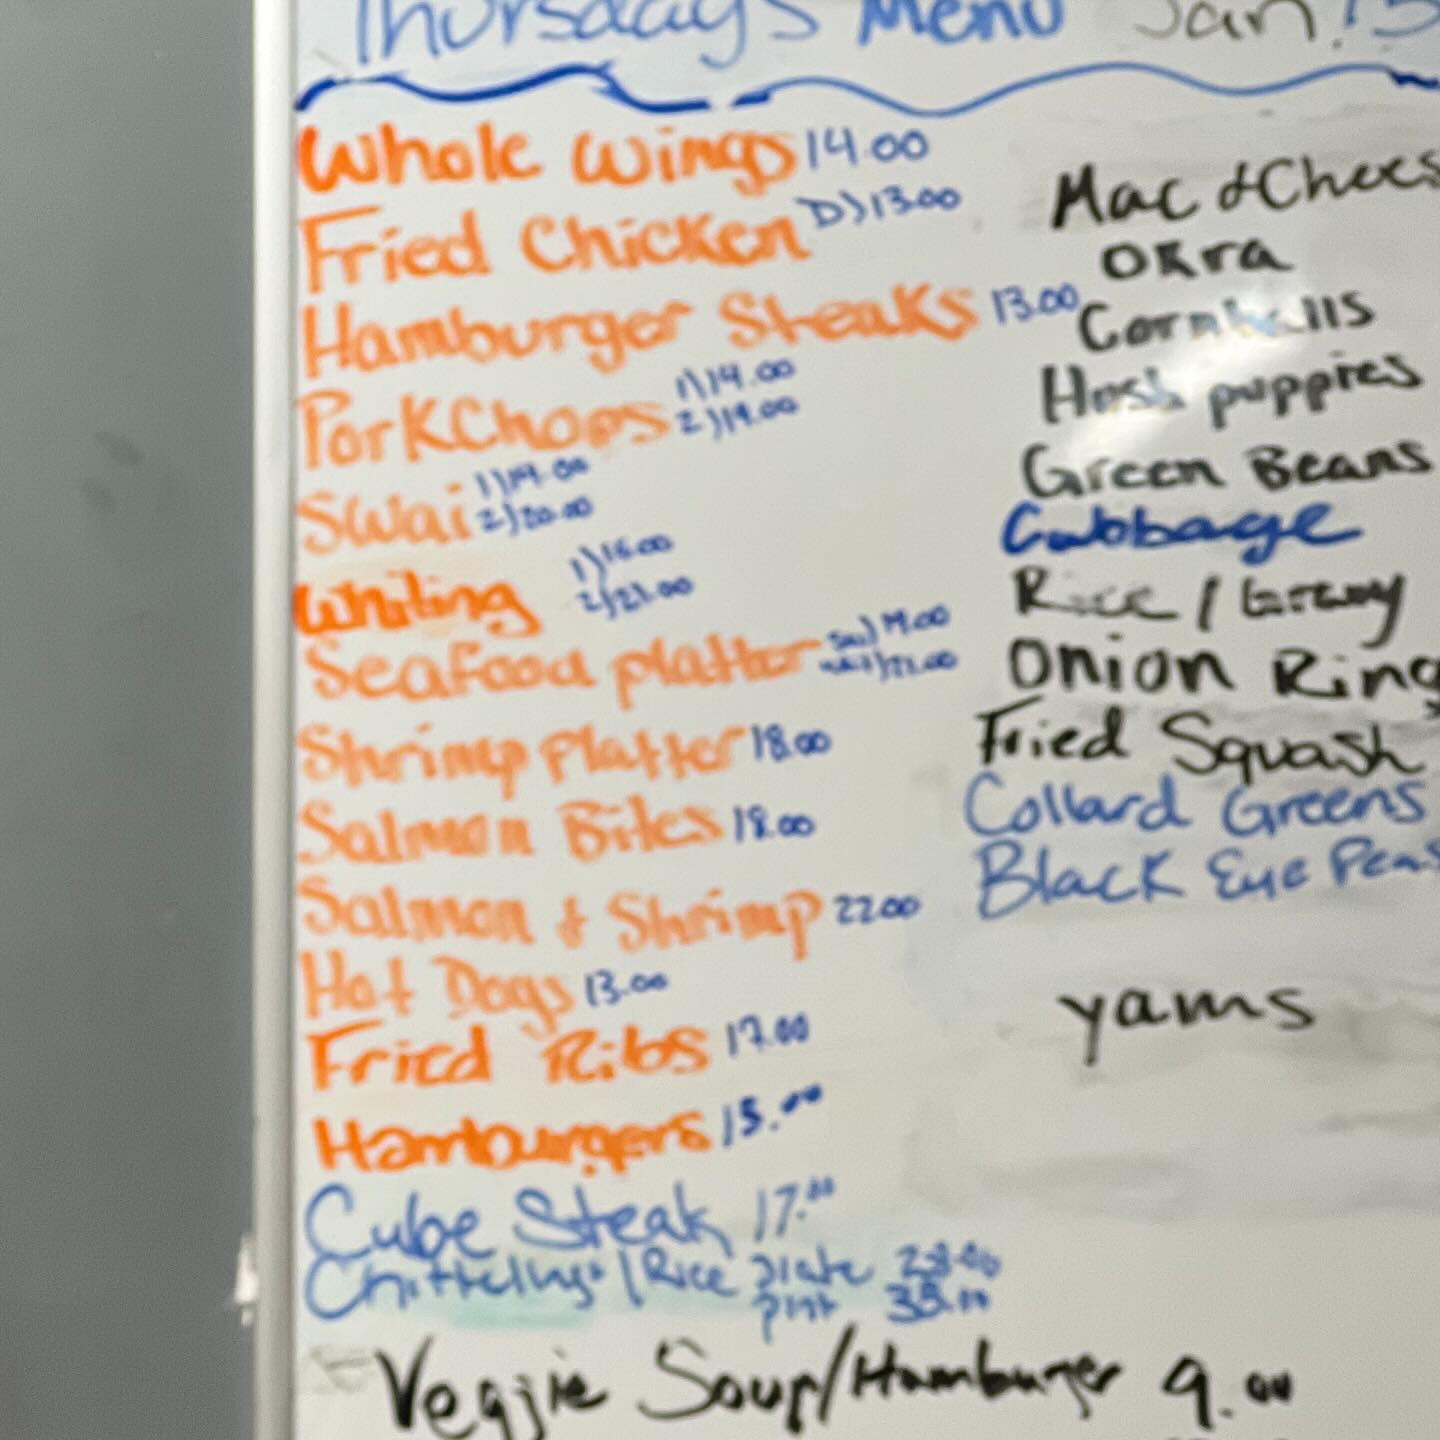 Thursday's Menu Jan. 15
Whole Wings 14.00
Fried Chicken D) 13.00
Hamburger Steaks 13.00
PorkChops 1) 14.00
2) 19.00
Swai 1) 14.00
2) 20.00
Whiting 1) 15.00
2) 21.00
Seafood platter
Shrimp Platter 18.00
Salmon Bites 18.00
Salmon & Shrimp 22.00
Hot Dogs 13.00
Fried Ribs 17.00
Hamburgers 15.00
Cube Steak 17.00
Rice plate
pint
Veggie Soup/Hamburger 9.00
Mac & Chees
Okra
Hush puppies
Green Beans
Cabbage
Rice / Gravy
Onion Rings
Fried Squash
Collard Greens
Black Eye Peas
yams